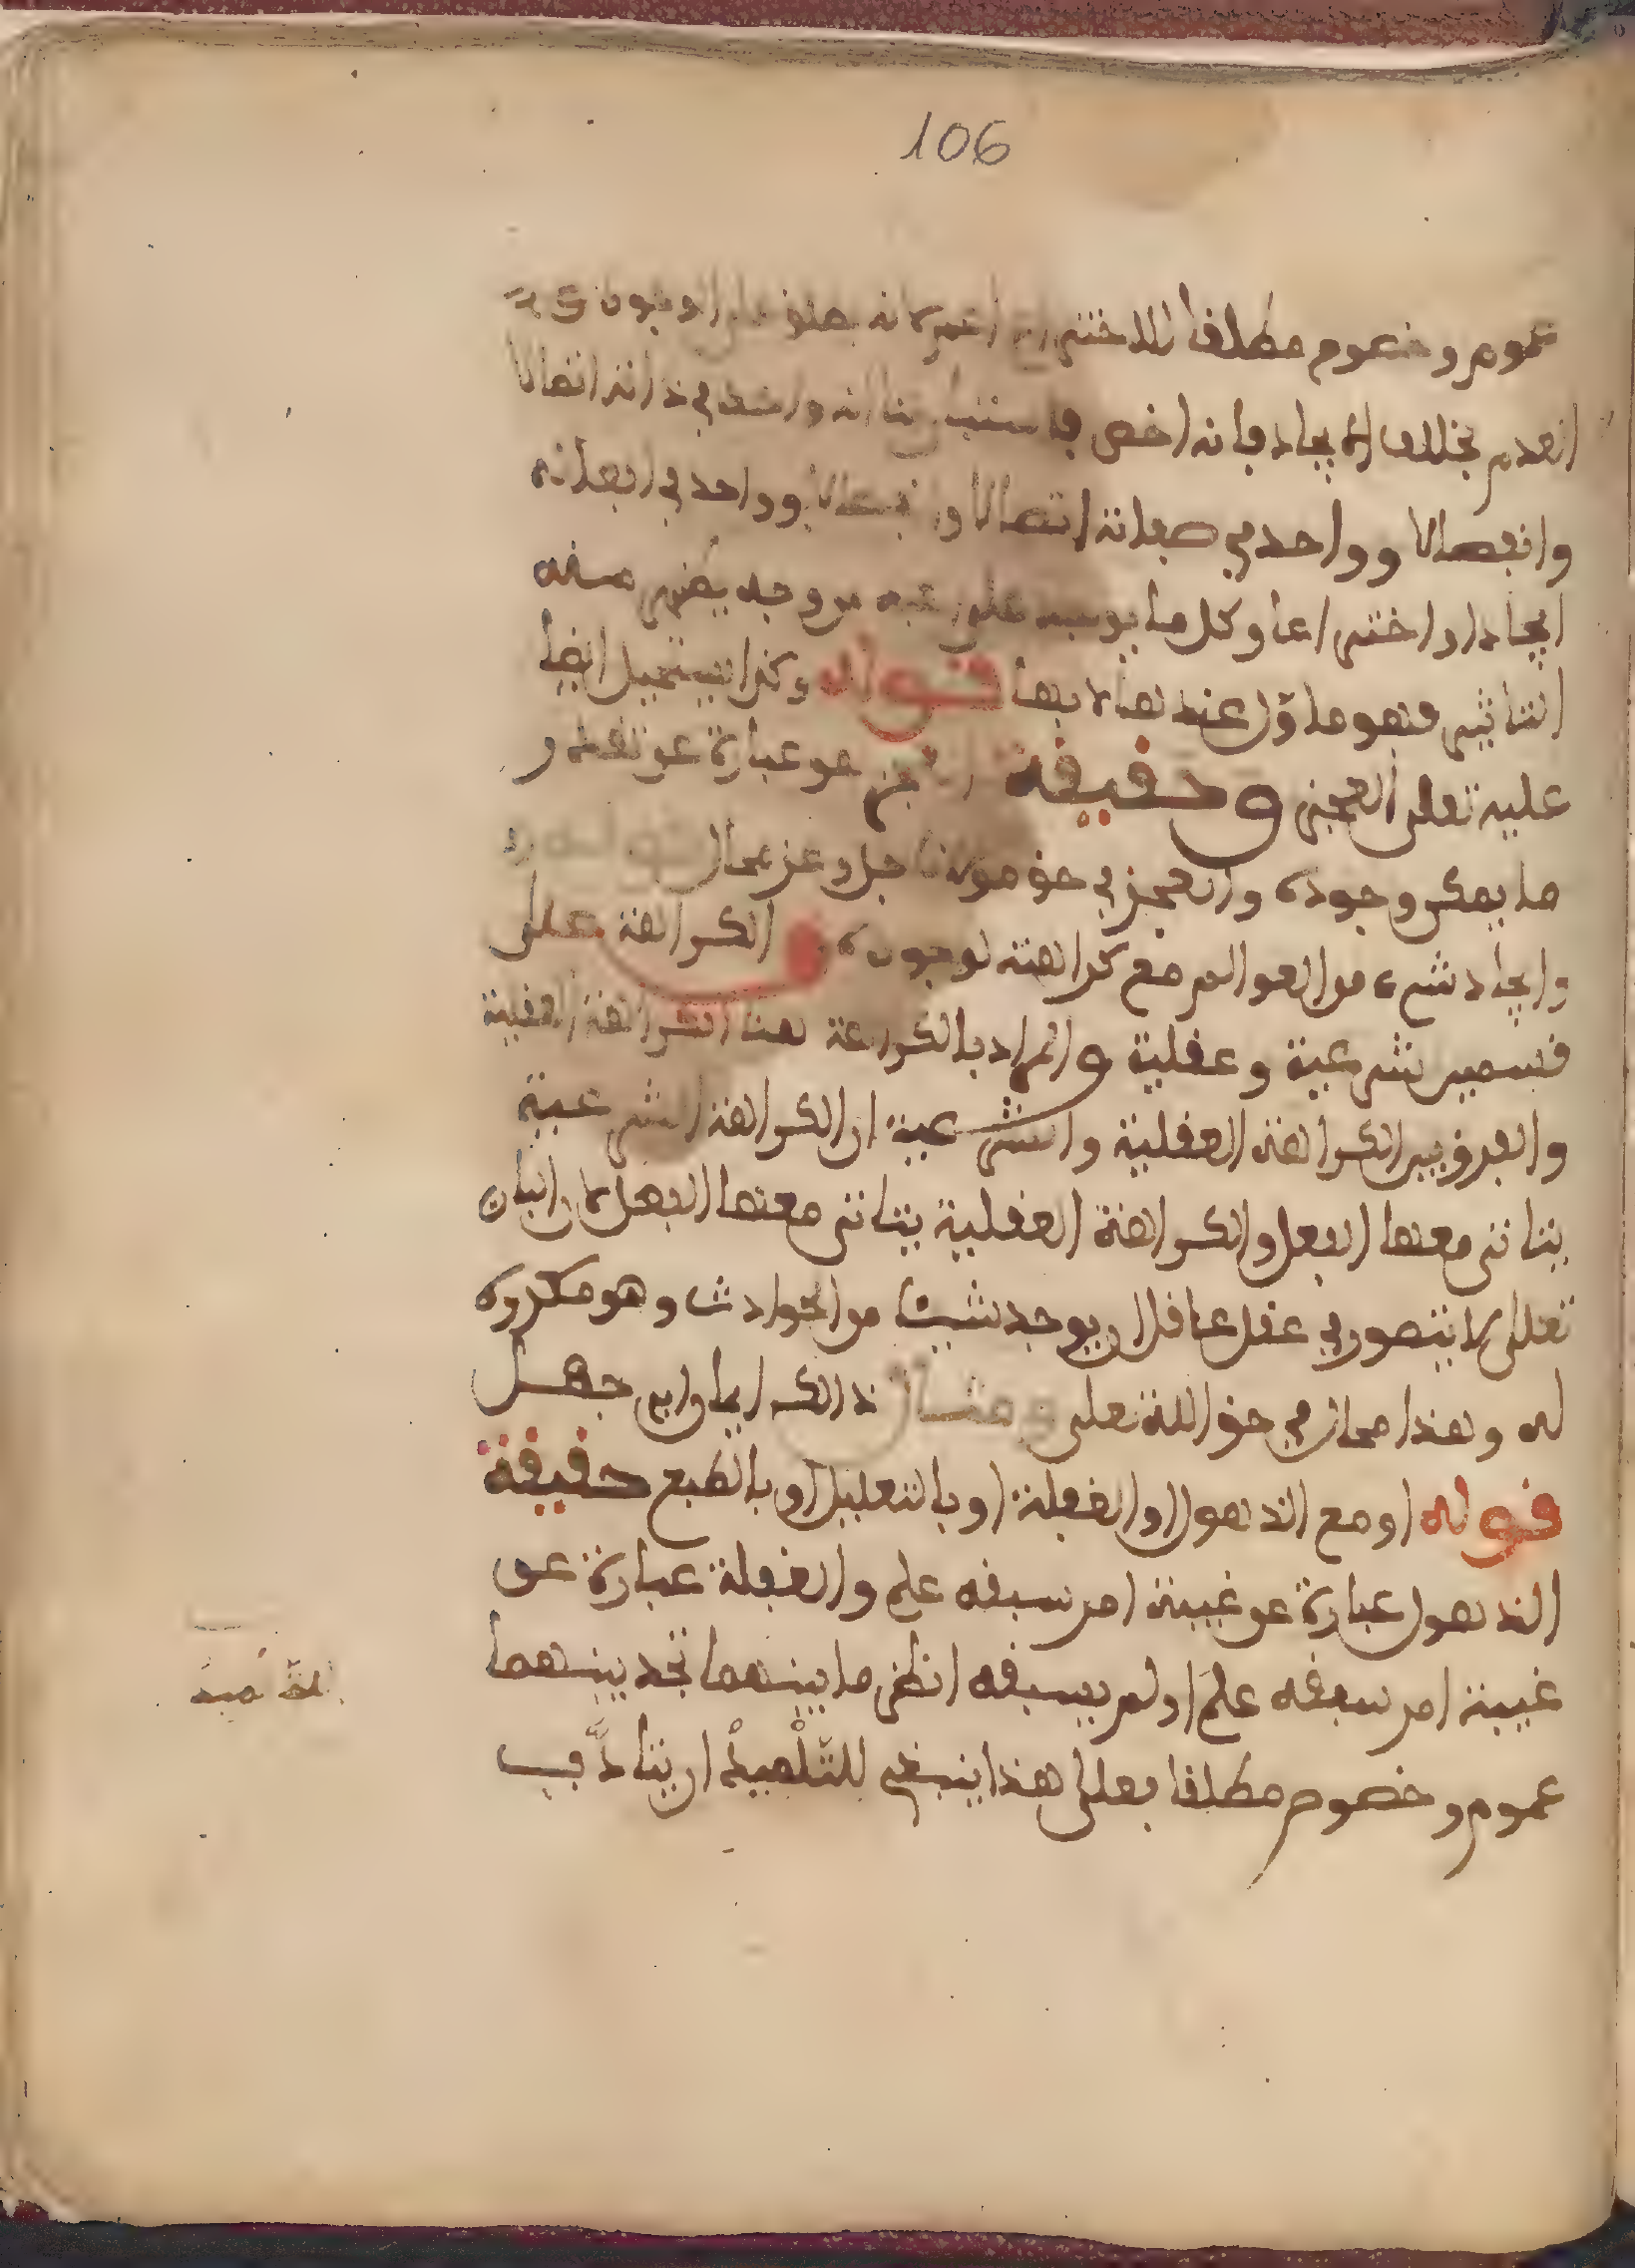 106
عموم وخصوم مطلقا الاختراع اعم لانه يطلق على الوجود و
العدم بخلاف الايجاد فانه اخص فاستبان بنا انه واحد في ذاته اتصالا
وانفصالا وواحد في صفاته اتصالا وانفصالا وواحد في افعاله
ايجادا واختراعا وكل ما يوجد على غيره من وجه يظهر منه
التاثير فهو ماوّل عندها لا بها قوله وكذا يستحيل ايضا
عليه تعلى العجز وحقيقة العجز هو عبارة عن تعذر
ما يمكن وجوده والعجز في حق مولانا جل وعز محال قوله
وايجاد شيء من العوالم مع كراهته لوجوده الكراهة على
قسمين شرعية وعقلية والمراد بالكراهة هنا الكراهة العقلية
والفرق بين الكراهة العقلية والشرعية ان الكراهة الشرعية
يتاتى معها الفعل والكراهة العقلية يتاتى معها الفعل لان البان
تعلى لا يتصور في عقل عاقل ان يوجد شيئا من الحوادث وهو مكروه
له وهذا محال في حق الله تعلى ومثال ذالك ايمان ابي جهل
قوله او مع الذهول او الغفلة او بالتعليل او بالطبع حقيقة
الذهول عبارة عن غيبة امر سبقه علم والغفلة عبارة عن
غيبة امر سبقه علم او لم يسبقه انظر ما بينهما تجد بينهما
عموم وخصوم مطلقا فعلى هذا ينبغي للتلميذ ان يتادّب